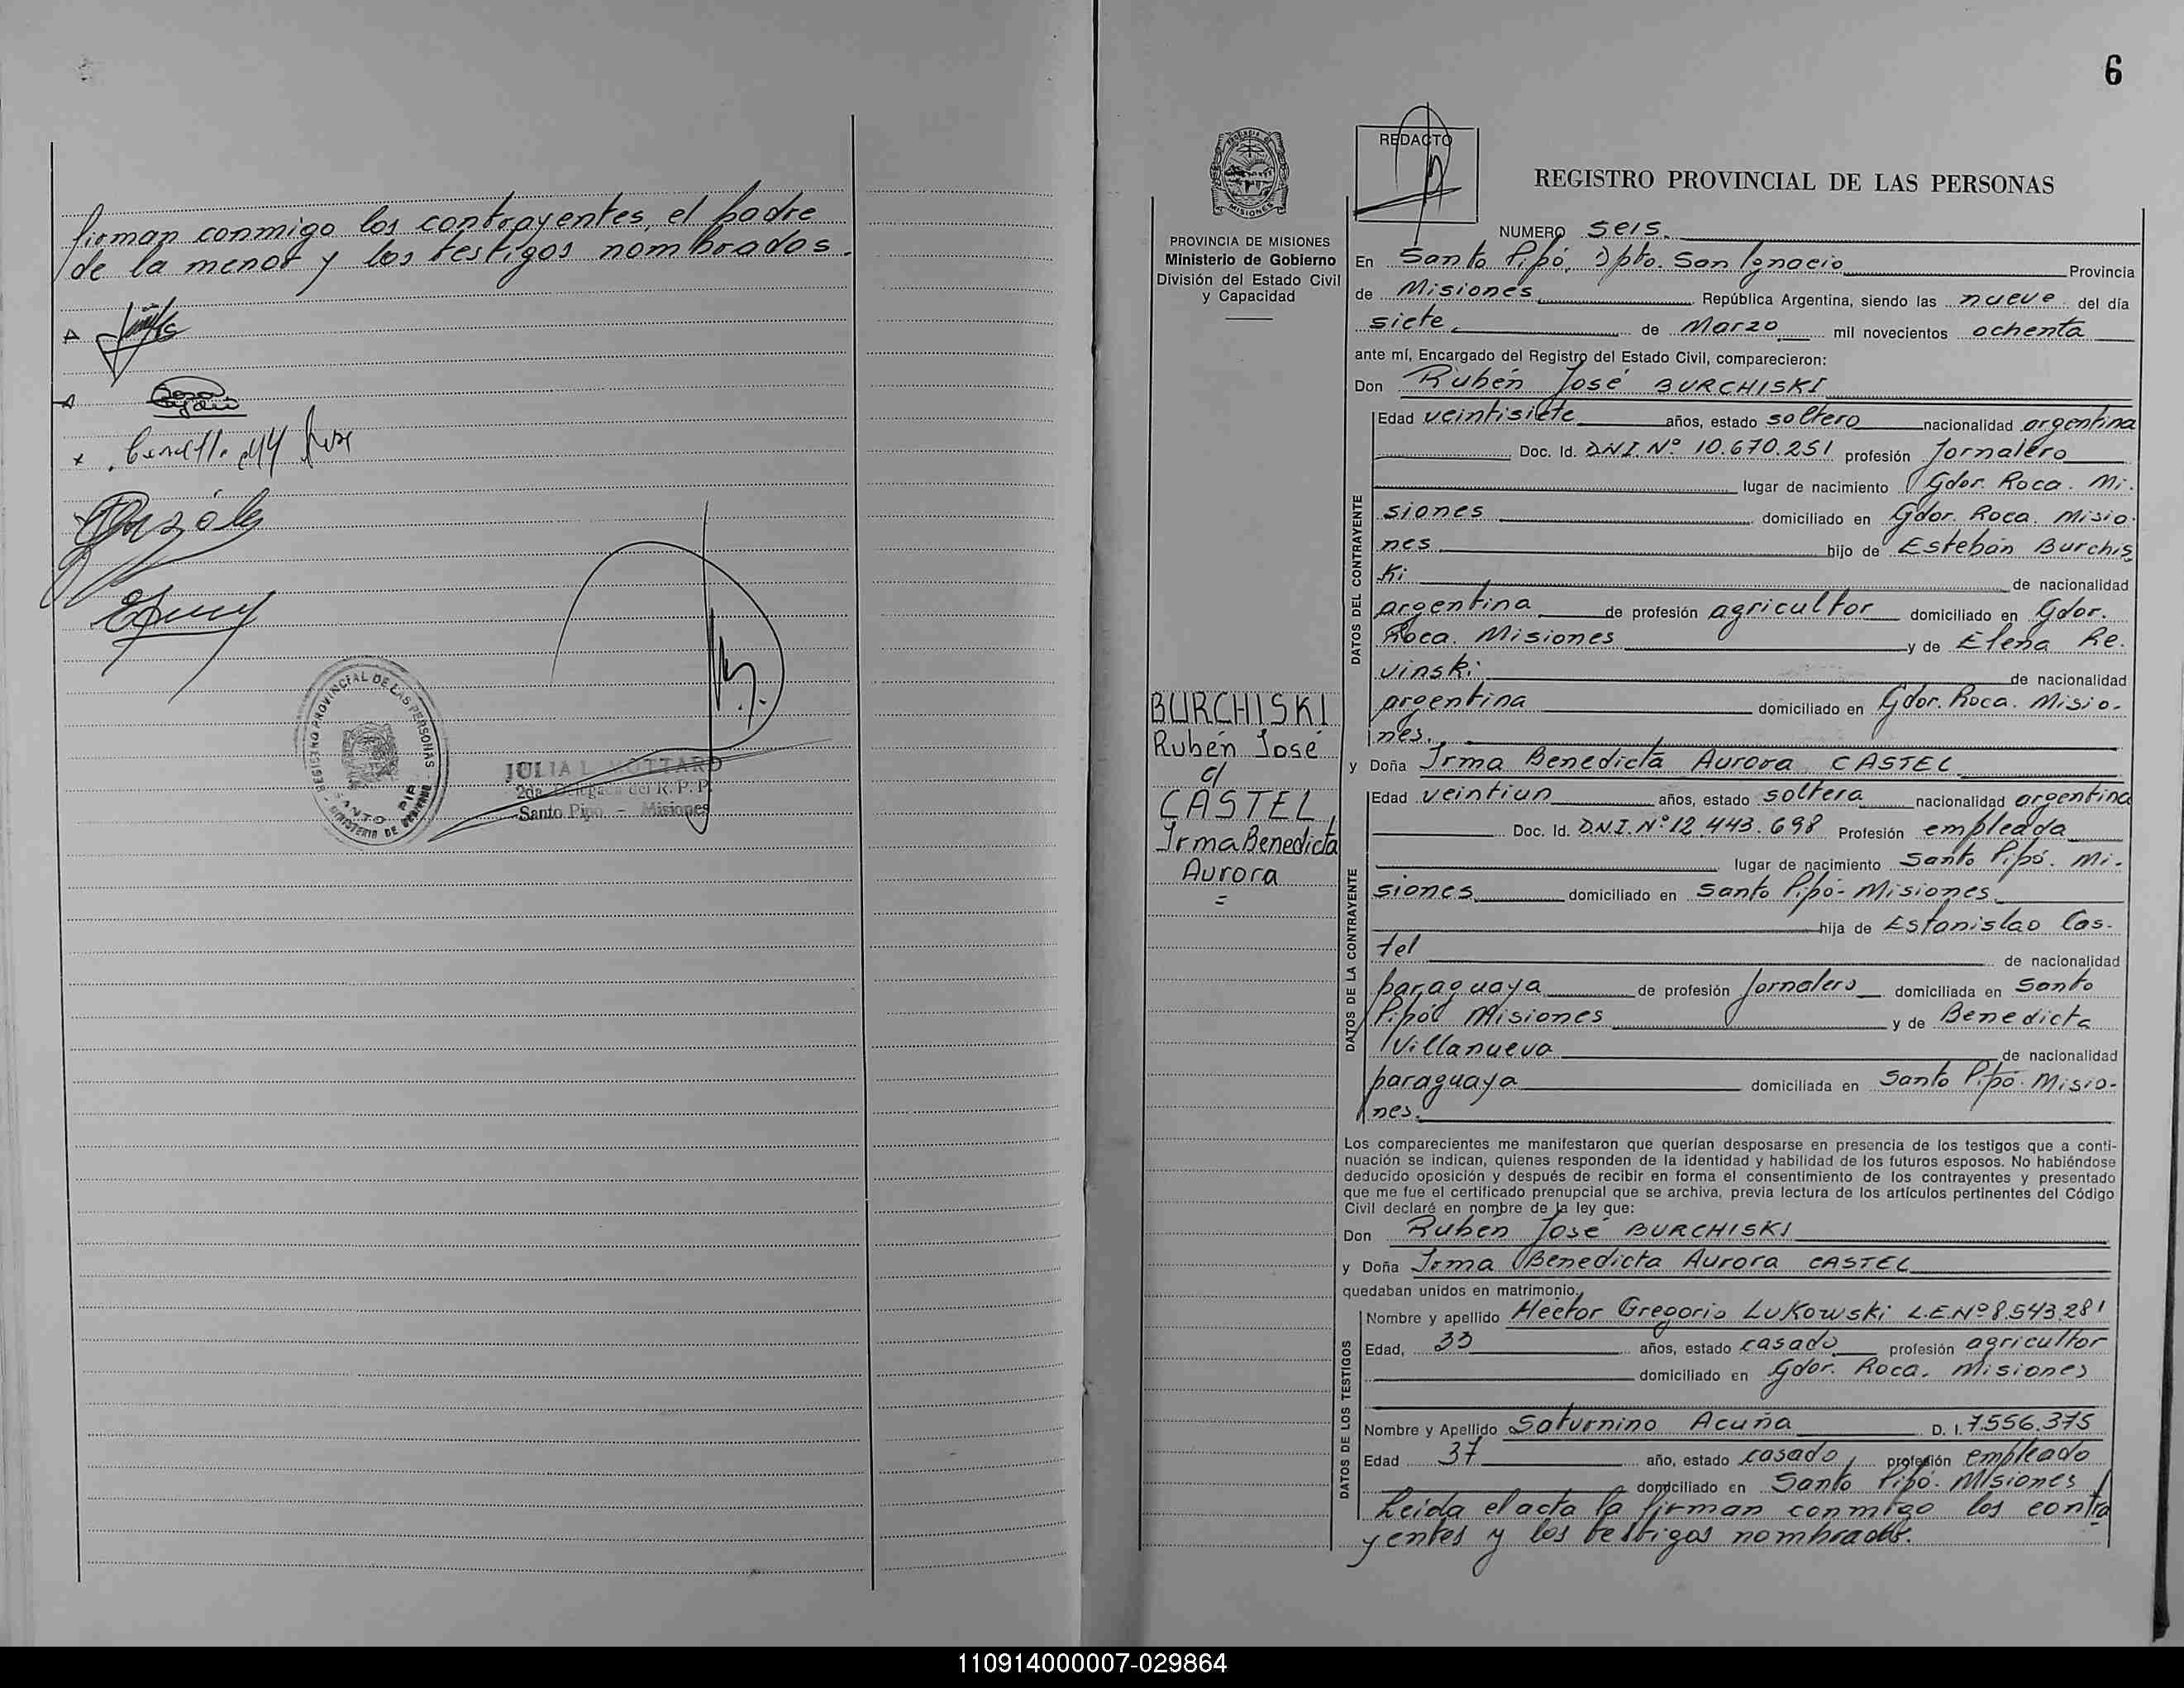 firman conmigo los contrayentes, el padre
de la menor y los testigos nombrados.
REGISTRO PROVINCIAL DE LAS PERSONAS
SANTO PIPO
MINISTERIO DE GOBIERNO
JULIA L. MOTTARD
2da. Delegada del R. P. P.
Santo Pipo - Misiones
6
PROVINCIA DE MISIONES
Ministerio de Gobierno
División del Estado Civil
y Capacidad
BURCHISKI
Rubén José
c/
CASTEL,
Irma Benedicta
Aurora
=
REDACTO
REGISTRO PROVINCIAL DE LAS PERSONAS
NUMERO seis.
En Santo Pipó, Dpto. San Ignacio Provincia
de Misiones, República Argentina, siendo las nueve del día
siete, de Marzo mil novecientos ochenta
ante mí, Encargado del Registro del Estado Civil, comparecieron:
Don Rubén José BURCHISKI
DATOS DEL CONTRAYENTE
Edad veintisiete años, estado soltero nacionalidad argentina
Doc. Id. D.N.I. Nº 10.670.251 profesión Jornalero
lugar de nacimiento Gdor. Roca. Mi-
siones domiciliado en Gdor. Roca. Misio-
nes hijo de Esteban Burchis
ki de nacionalidad
argentina de profesión agricultor domiciliado en Gdor.
Roca. Misiones y de Elena Re-
vinski de nacionalidad
argentina domiciliado en Gdor. Roca. Misio-
nes.
y Doña Irma Benedicta Aurora CASTEL
DATOS DE LA CONTRAYENTE
Edad veintiun años, estado soltera nacionalidad argentina
Doc. Id. D.N.I. Nº 12.443.698 Profesión empleada
lugar de nacimiento Santo Pipó. Mi-
siones domiciliado en Santo Pipó- Misiones
hija de Estanislao Cas-
tel de nacionalidad
paraguaya de profesión Jornalero domiciliada en Santo
Pipó Misiones y de Benedicta
Villanueva de nacionalidad
paraguaya domiciliada en Santo Pipó. Misio-
nes.
Los comparecientes me manifestaron que querían desposarse en presencia de los testigos que a conti-
nuación se indican, quienes responden de la identidad y habilidad de los futuros esposos. No habiéndose
deducido oposición y después de recibir en forma el consentimiento de los contrayentes y presentado
que me fue el certificado prenupcial que se archiva, previa lectura de los artículos pertinentes del Código
Civil declaré en nombre de la ley que:
Don Rubén José BURCHISKI
y Doña Irma Benedicta Aurora CASTEL
quedaban unidos en matrimonio.
DATOS DE LOS TESTIGOS
Nombre y apellido Héctor Gregorio Lukowski L.E.Nº 8.543.281
Edad, 33 años, estado casado profesión agricultor
domiciliado en Gdor. Roca. Misiones
Nombre y Apellido Saturnino Acuña D. I. 7.556.375
Edad 37 año, estado casado profesión empleado
domiciliado en Santo Pipó. Misiones
Leida el acta la firman conmigo los contra
yentes y los testigos nombrados.
110914000007-029864